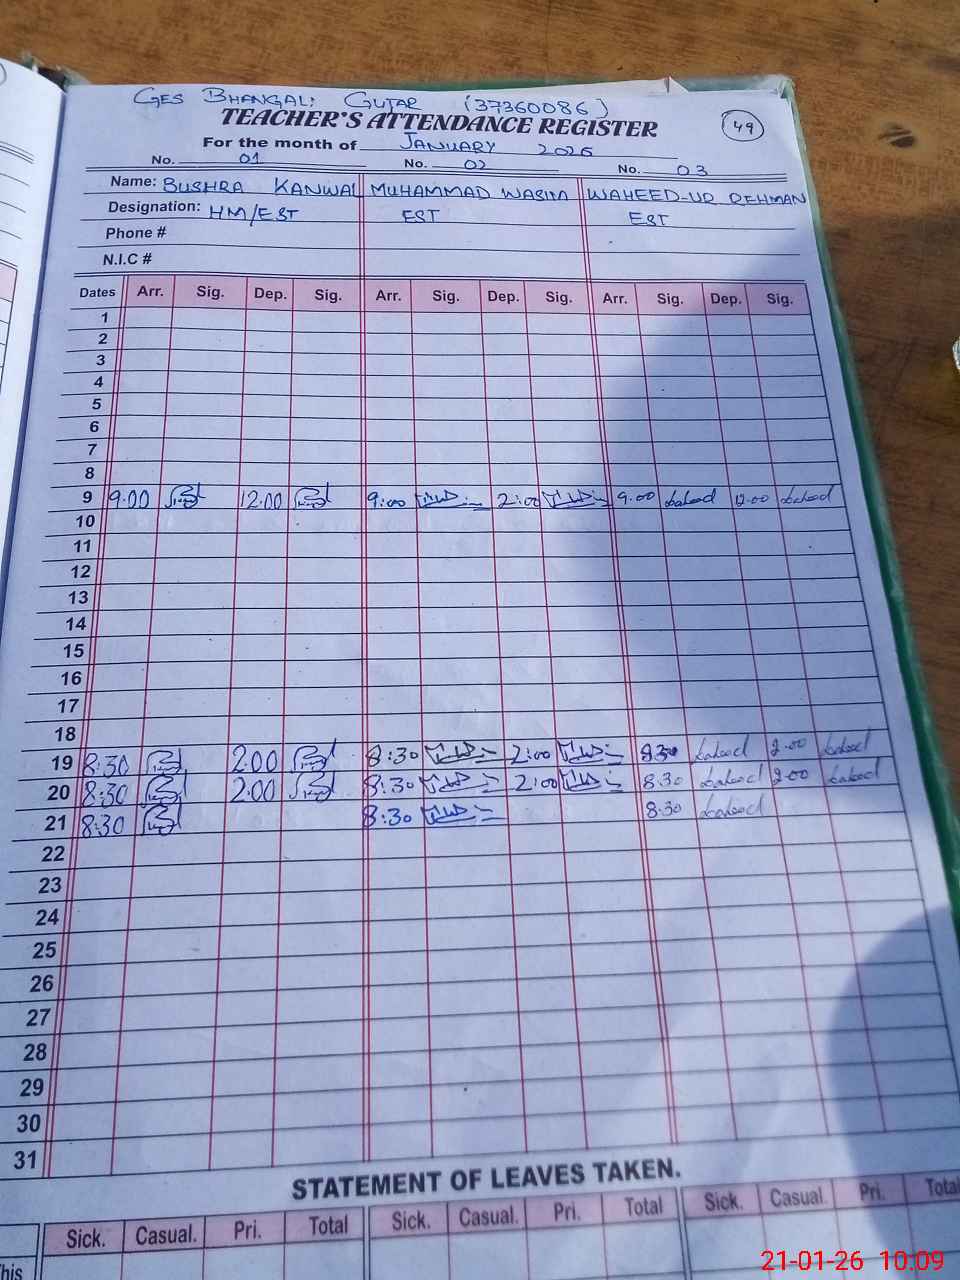 GES BHANGALI GUJAR (37360086)
TEACHER'S ATTENDANCE REGISTER
49
For the month of JANUARY 2026
No. 01 No. 02 No. 03
Name: BUSHRA KANWAL MUHAMMAD WASIM WAHEED-UR REHMAN
Designation: HM/EST EST EST
Phone #
N.I.C #
Dates Arr. Sig. Dep. Sig. Arr. Sig. Dep. Sig. Arr. Sig. Dep. Sig.
1
2
3
4
5
6
7
8
9 9.00 12.00 9:00 2:00 9.00 12.00
10
11
12
13
14
15
16
17
18
19 8:30 2.00 8:30 2:00 8.30 2.00
20 8:30 2.00 8:30 2:00 8.30 2.00
21 8:30 8:30 8.30
22
23
24
25
26
27
28
29
30
31
STATEMENT OF LEAVES TAKEN.
Sick. Casual. Pri. Total Sick. Casual. Pri. Total Sick. Casual. Pri. Total
This
21-01-26 10.09